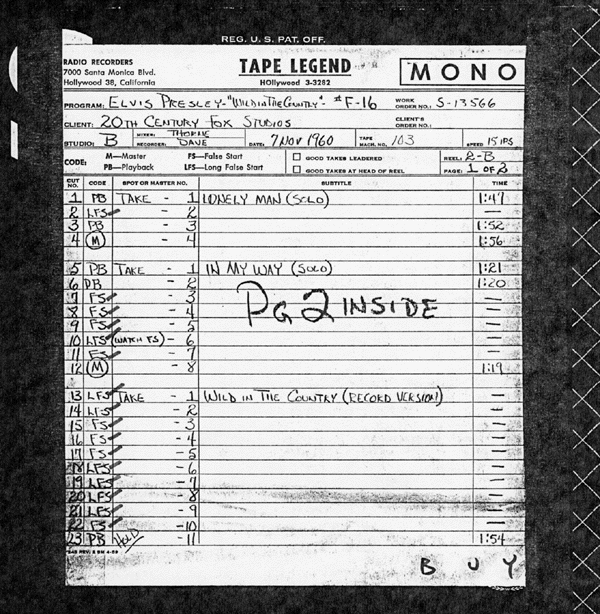 REG. U. S. PAT. OFF.
RADIO RECORDERS
7000 Santa Monica Blvd.
Hollywood 38, California
TAPE LEGEND
HOllywood 3-3282
MONO
PROGRAM: ELVIS PRESLEY-"WILD IN THE COUNTRY"- #F-16 WORK ORDER NO.: S-13566
CLIENT: 20TH CENTURY FOX STUDIOS CLIENT'S ORDER NO.:
STUDIO: B MIXER: THORNE RECORDER: DAVE DATE: 7 NOV 1960 TAPE MACH. NO. 103 SPEED 15 IPS
CODE: M—Master FS—False Start GOOD TAKES LEADERED REEL: 2-B
PB—Playback LFS—Long False Start GOOD TAKES AT HEAD OF REEL PAGE: 1 OF 2
CUT NO. CODE SPOT OR MASTER NO. SUBTITLE TIME
1 PB TAKE - 1 LONELY MAN (SOLO) 1:47
2 LFS - 2 —
3 PB - 3 1:52
4 M - 4 1:56
5 PB TAKE - 1 IN MY WAY (SOLO) 1:21
6 PB - 2 1:20
7 FS - 3 —
8 FS - 4 —
9 FS - 5 —
10 LFS (WATCH FS) - 6 —
11 FS - 7 —
12 M - 8 1:19
PG 2 INSIDE
13 LFS TAKE - 1 WILD IN THE COUNTRY (RECORD VERSION) —
14 LFS - 2 —
15 FS - 3 —
16 FS - 4 —
17 FS - 5 —
18 LFS - 6 —
19 LFS - 7 —
20 LFS - 8 —
21 LFS - 9 —
22 FS - 10 —
23 PB HOLD - 11 1:54
B U Y